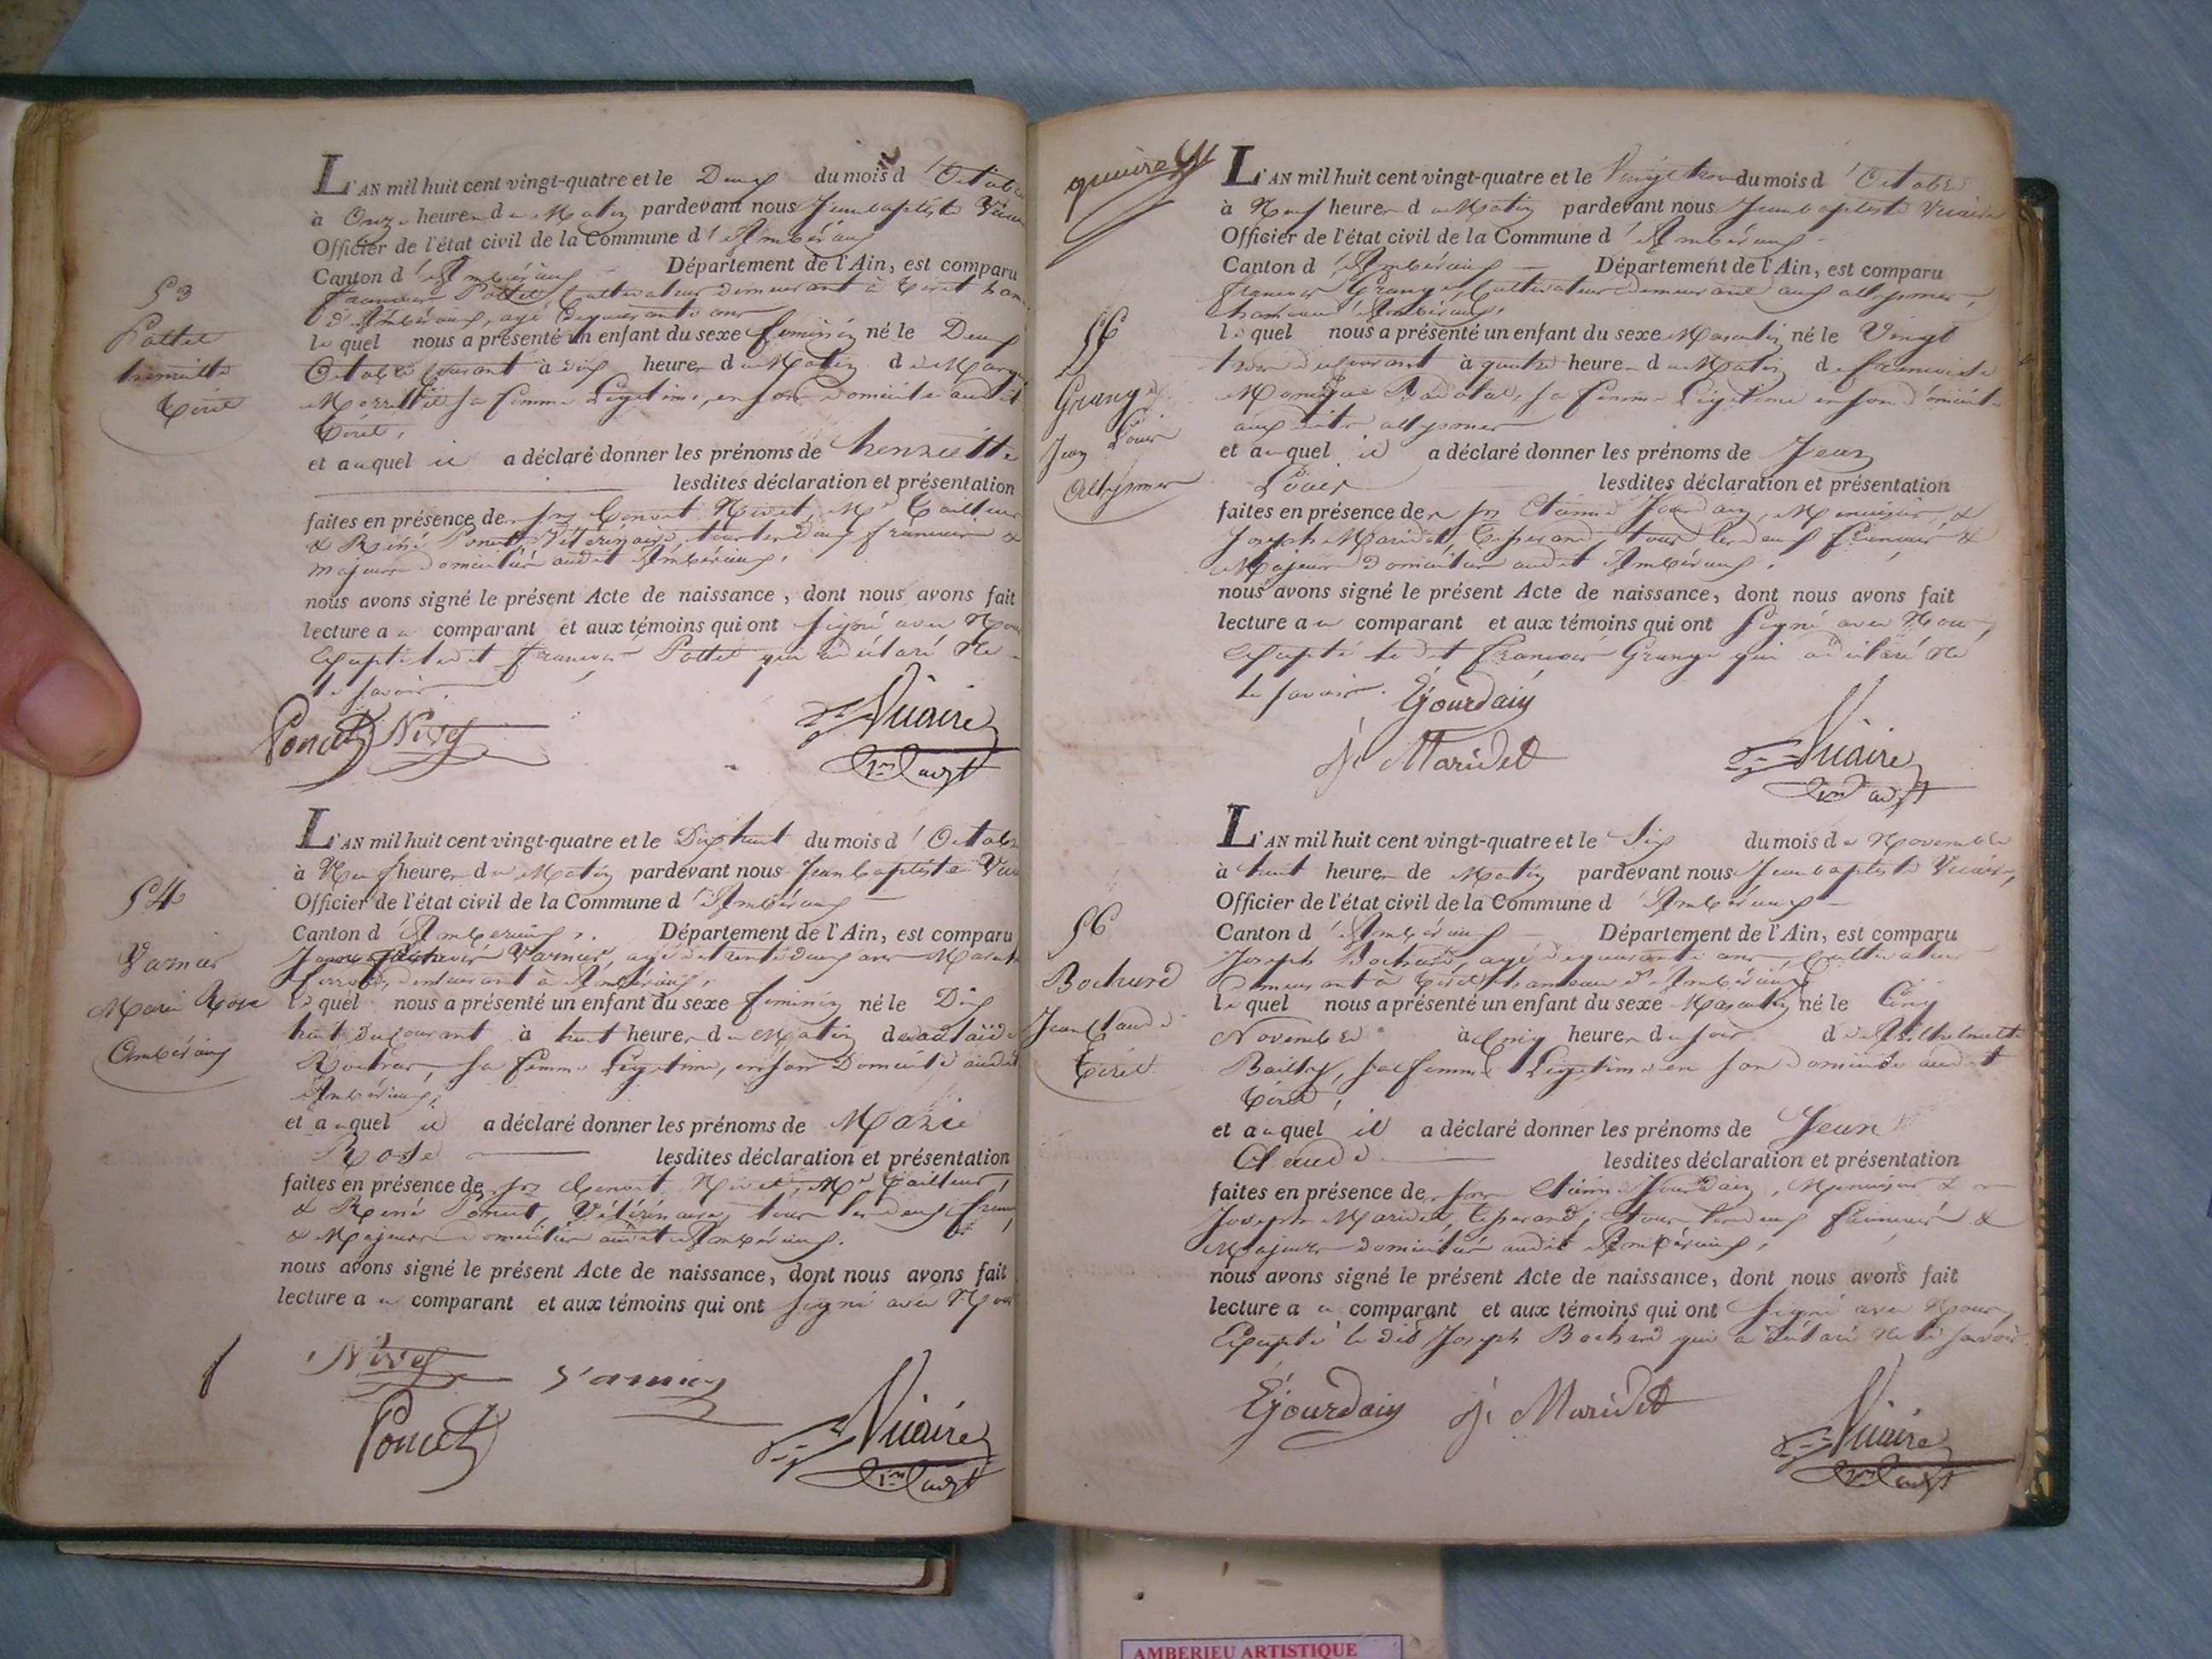 53
Pottet
henriette
Tiret
L'AN mil huit cent vingt-quatre et le Deux du mois d'Octobre
à Onze heures du Matin pardevant nous Jean baptiste
Officier de l'état civil de la Commune d'Ambérieux
Canton d'Ambérieux Département de l'Ain, est comparu
francois Pottet, Cultivateur demeurant à Tiret
d'Ambérieux, agé de quarante ans
lequel nous a présenté un enfant du sexe feminin né le Deux
Octobre Courant à dix heures du Matin de
sa femme Legitime, en son domicile audit
Tiret,
et auquel il a déclaré donner les prénoms de henriette
lesdites déclaration et présentation
faites en présence de Benoit Nivet, Md Tailleur
& Réné Poncet, Vétérinaire, tous les deux francais &
majeurs domiciliés audit Ambérieux,
nous avons signé le présent Acte de naissance, dont nous avons fait
lecture au comparant et aux témoins qui ont signé avec Nous
Excepté ledit francois Pottet qui a déclaré Ne
le savoir.
Poncet Nivet Vicaire
54
Varnier
Marie Rose
Ambérieux
L'AN mil huit cent vingt-quatre et le Dix huit du mois d'Octobre
à Neuf heures du Matin pardevant nous Jean baptiste
Officier de l'état civil de la Commune d'Ambérieux
Canton d'Ambérieux. Département de l'Ain, est comparu
Varnier, agé de trente deux ans
demeurant à Ambérieux,
lequel nous a présenté un enfant du sexe feminin né le Dix
huit du Courant à huit heures du Matin
sa femme Legitime, en son Domicile audit
Ambérieux,
et auquel il a déclaré donner les prénoms de Marie
Rose lesdites déclaration et présentation
faites en présence de Benoit Nivet, Md Tailleur,
& Réné Poncet, Vétérinaire, tous les deux
& Majeurs domiciliés audit Ambérieux.
nous avons signé le présent Acte de naissance, dont nous avons fait
lecture au comparant et aux témoins qui ont signé avec Nous
Nivet Varnier
Poncet Vicaire
L'AN mil huit cent vingt-quatre et le Vingt trois du mois d'Octobre
à Neuf heures du Matin pardevant nous Jean baptiste Vicaire
Officier de l'état civil de la Commune d'Ambérieux
Canton d'Ambérieux Département de l'Ain, est comparu
francois Grange, Cultivateur demeurant aux allymes,
hameau d'Ambérieux,
Grange
Jean Louis
Allymes
lequel nous a présenté un enfant du sexe Masculin né le Vingt
trois du Courant à quatre heures du Matin de francoise
Monique sa femme Legitime en son domicile
aux dits allymes
et auquel il a déclaré donner les prénoms de Jean
Louis lesdites déclaration et présentation
faites en présence de Etienne Jourdain, Menuisier, &
Joseph Maridet, Tisserand, tous les deux francais &
Majeurs domiciliés audit Ambérieux,
nous avons signé le présent Acte de naissance, dont nous avons fait
lecture au comparant et aux témoins qui ont signé avec Nous,
Excepté ledit francois Grange qui a déclaré Ne
le savoir.
E Jourdain
J. Maridet Vicaire
56
Bochard
Jean Claude
Tiret
L'AN mil huit cent vingt-quatre et le Six du mois de Novembre
à huit heures de Matin pardevant nous Jean baptiste Vicaire,
Officier de l'état civil de la Commune d'Ambérieux
Canton d'Ambérieux Département de l'Ain, est comparu
Joseph Bochard, agé de quarante ans, Cultivateur
demeurant à Tiret hameau d'Ambérieux,
lequel nous a présenté un enfant du sexe Masculin né le Cinq
Novembre à Cinq heures du soir
Bailly, sa femme Legitime en son domicile audit
Tiret,
et auquel il a déclaré donner les prénoms de Jean
Claude lesdites déclaration et présentation
faites en présence de Etienne Jourdain, Menuisier &
Joseph Maridet, Tisserand, tous les deux francais &
Majeurs domiciliés audit Ambérieux,
nous avons signé le présent Acte de naissance, dont nous avons fait
lecture au comparant et aux témoins qui ont signé avec Nous,
Excepté le dit Joseph Bochard qui a déclaré Ne le savoir
E Jourdain J. Maridet Vicaire
AMBERIEU ARTISTIQUE